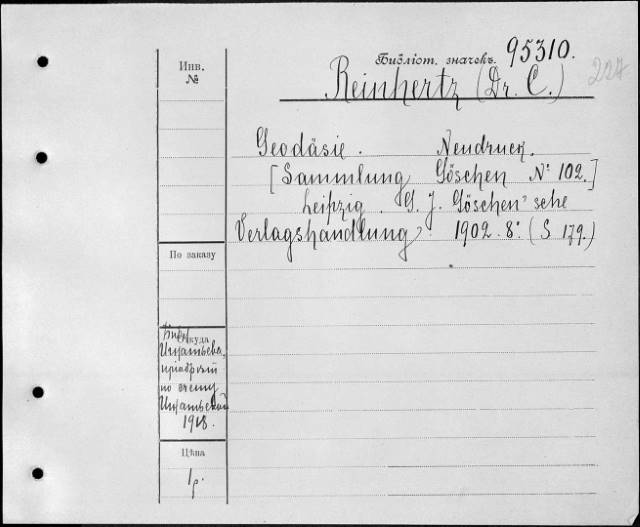 Библіот. значекъ 95310.
227
Reinhertz (Dr. C.)
Инв.
№
Geodäsie. Neudruck.
[Sammlung Göschen № 102.]
Leipzig. G. J. Göschen'sche
Verlagshandlung. 1902. 8°. (S 179.)
По заказу
Откуда
по счету
1918.
Цѣна
1 р.